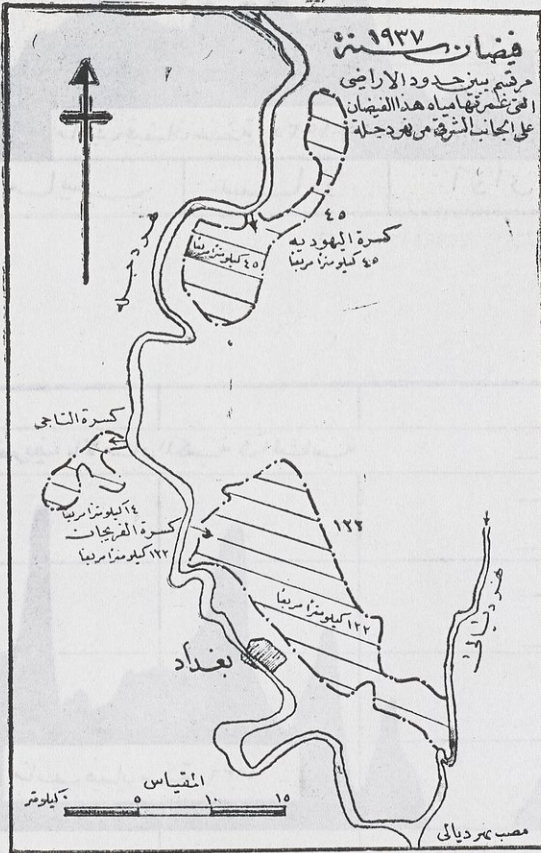 فيضان سنة ١٩٣٧
مرتسم يبين حدود الاراضي
التي غمرتها مياه هذا الفيضان
على الجانب الشرقي من نهر دجلة
٤٥
كسرة اليهوديه
٤٥ كيلومترا مربعا
٤٥ كيلومترا مربعا
كسرة التاجي
١٤ كيلومترا مربعا
كسرة الفريجات
١٢٢ كيلومترا مربعا
١٢٢
١٢٢ كيلومترا مربعا
بغداد
نهر ديالى
المقياس
كيلومتر ٥ ١٠ ١٥
مصب نهر ديالى